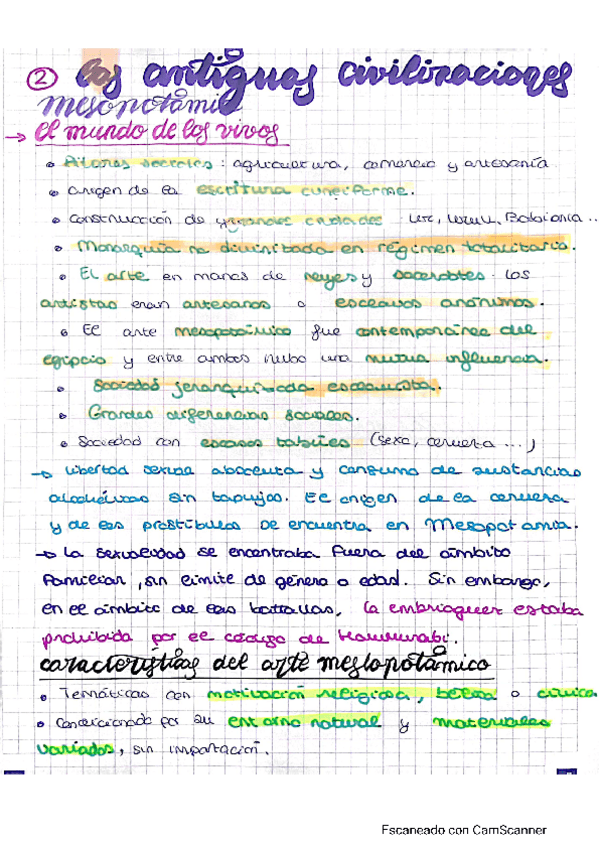 ② las antiguas civilizaciones
mesopotamia
→ El mundo de los vivos
• Pilares sociales: agricultura, comercio y artesanía
• origen de la escritura cuneiforme.
• Construcción de grandes ciudades Ur, Uruk, Babilonia..
• Monarquía no divinizada en régimen totalitario.
• El arte en manos de reyes y sacerdotes. los
artistas eran artesanos o esclavos anónimos.
• El arte mesopotámico fue contemporáneo del
egipcio y entre ambos hubo una mutua influencia.
• Sociedad jerarquizada esclavista.
• Grandes diferencias sociales.
• Sociedad con escasos tabúes (sexo, cerveza ...)
→ libertad sexual absoluta y consumo de sustancias
alcohólicas sin tapujos. El origen de la cerveza
y de los prostíbulos se encuentra en Mesopotamia.
→ la sexualidad se encontraba fuera del ámbito
familiar, sin límite de género o edad. Sin embargo,
en el ámbito de las batallas, la embriaguez estaba
prohibida por el código de Hammurabi.
características del arte mesopotámico
• Temáticas con motivación religiosa, bélica o cívica.
• Condicionado por su entorno natural y materiales
variados, sin importación.
Escaneado con CamScanner